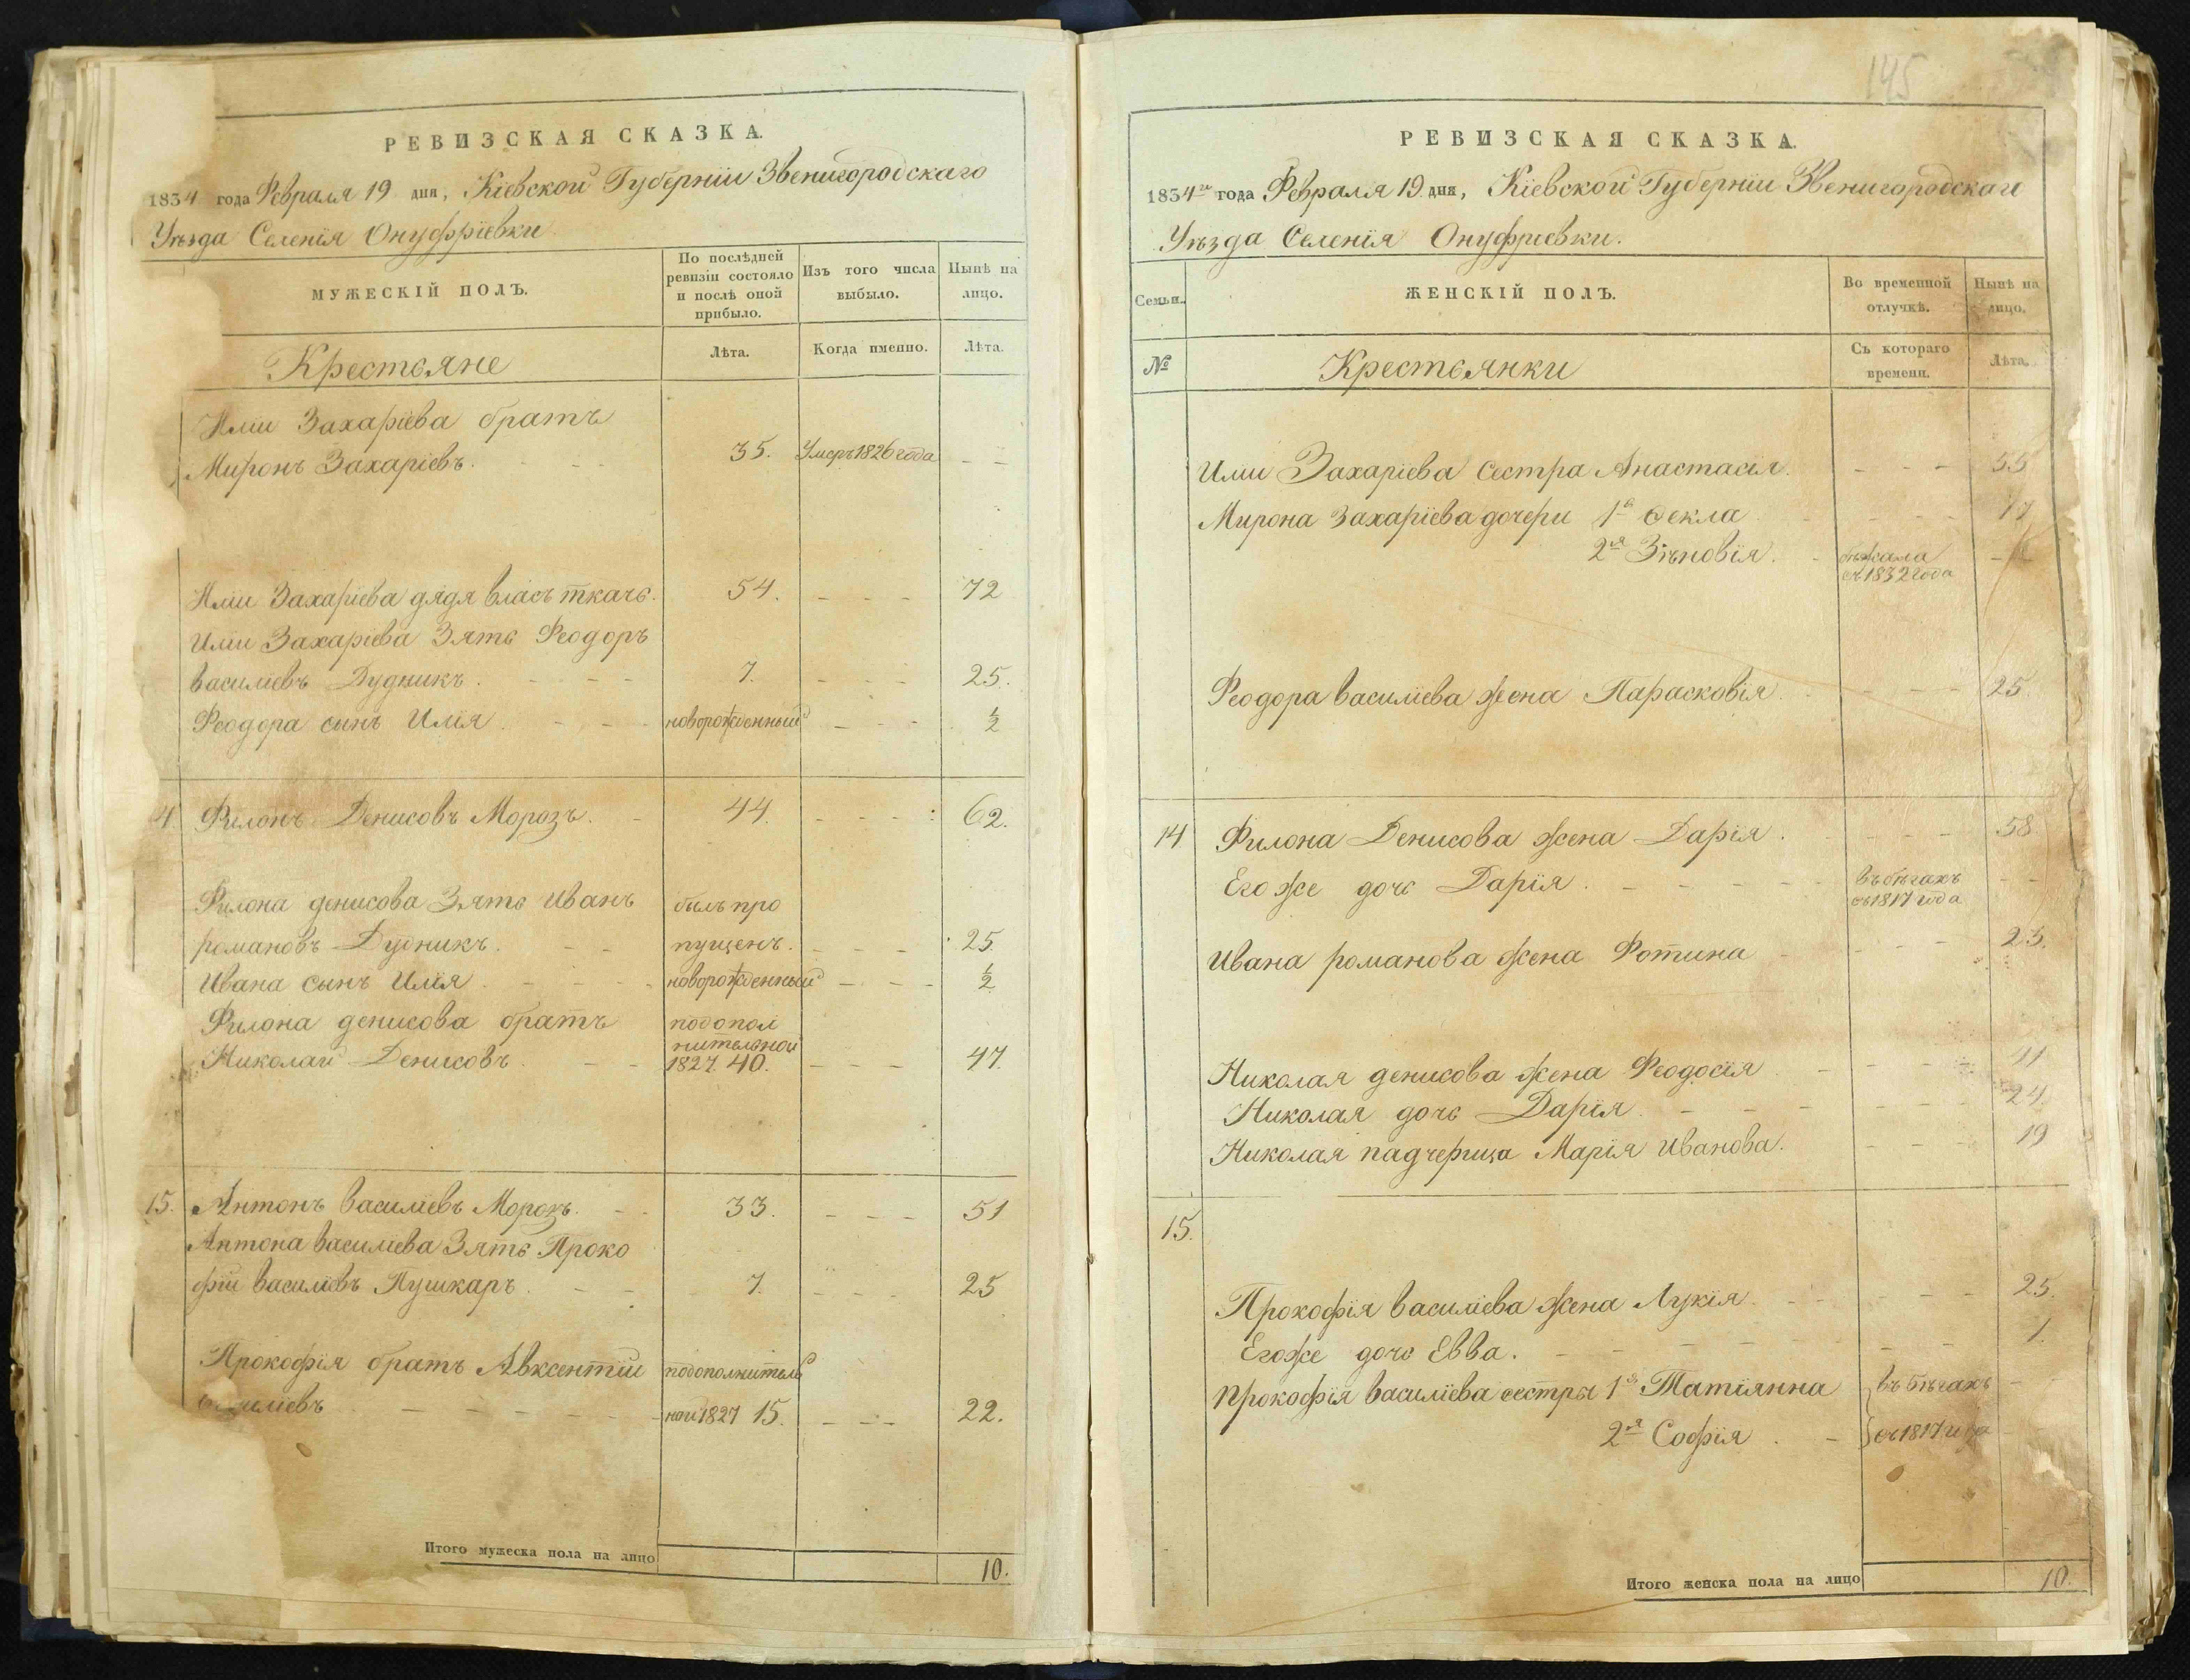 РЕВИЗСКАЯ СКАЗКА.
1834 года Февраля 19 дня, Кіевской Губерніи Звенигородскаго
Уѣзда Селенія Онуфріевки
МУЖЕСКІЙ ПОЛЪ.
По послѣдней ревизіи состояло и послѣ оной прибыло.
Изъ того числа выбыло.
Нынѣ на лицо.
Крестьяне
Лѣта.
Когда именно.
Лѣта.
Иліи Захаріева братъ
Миронъ Захаріевъ. 35. Умеръ 1826 года
Иліи Захаріева дядя власъ ткачь. 54. 72
Иліи Захаріева Зять Феодоръ
василіевъ Дудникъ. 7. 25.
Феодора сынъ Илія новорожденный ½
4. Филонъ Денисовъ Морозъ. 44. 62.
Филона денисова Зять Иванъ былъ про
романовъ Дудникъ. пущенъ. 25
Ивана сынъ Илія новорожденный ½
Филона денисова братъ подопол
нительной
Николай Денисовъ 1827. 40. 47.
15. Антонъ василіевъ Морозъ. 33. 51
Антона василиева Зять Проко
фій василіевъ Пушкаръ. 7. 25
Прокофія братъ Авксентій подополнитель
василіевъ ной 1827 15. 22.
Итого мужеска пола на лицо 10.
145
РЕВИЗСКАЯ СКАЗКА.
1834го года Февраля 19 дня, Кіевской Губерніи Звенигородскаго
Уѣзда Селенія Онуфріевки.
Семьи.
ЖЕНСКІЙ ПОЛЪ.
Во временной отлучкѣ.
Нынѣ на лицо.
№
Крестьянки
Съ котораго времени.
Лѣта.
Иліи Захаріева сестра Анастасія. 55
Мирона Захаріева дочери 1я Фекла 17
2я Зѣновія. бѣжала
съ 1832 года
Феодора василіева жена Парасковія 25
14 Филона Денисова жена Дарія. 58
Его же дочь Дарія. въ бѣгахъ
съ 1817 года
Ивана романова жена Фотина 23.
Николая денисова жена Феодосія 41
Николая дочь Дарія. 24
Николая падчерица Марія Иванова. 19
15.
Прокофія василіева жена Лукія. 25.
Егоже дочь Евва. 1.
Прокофія василіева сестры 1я Татіянна въ бѣгахъ
2я Софія съ 1817 года
Итого женска пола на лицо 10.